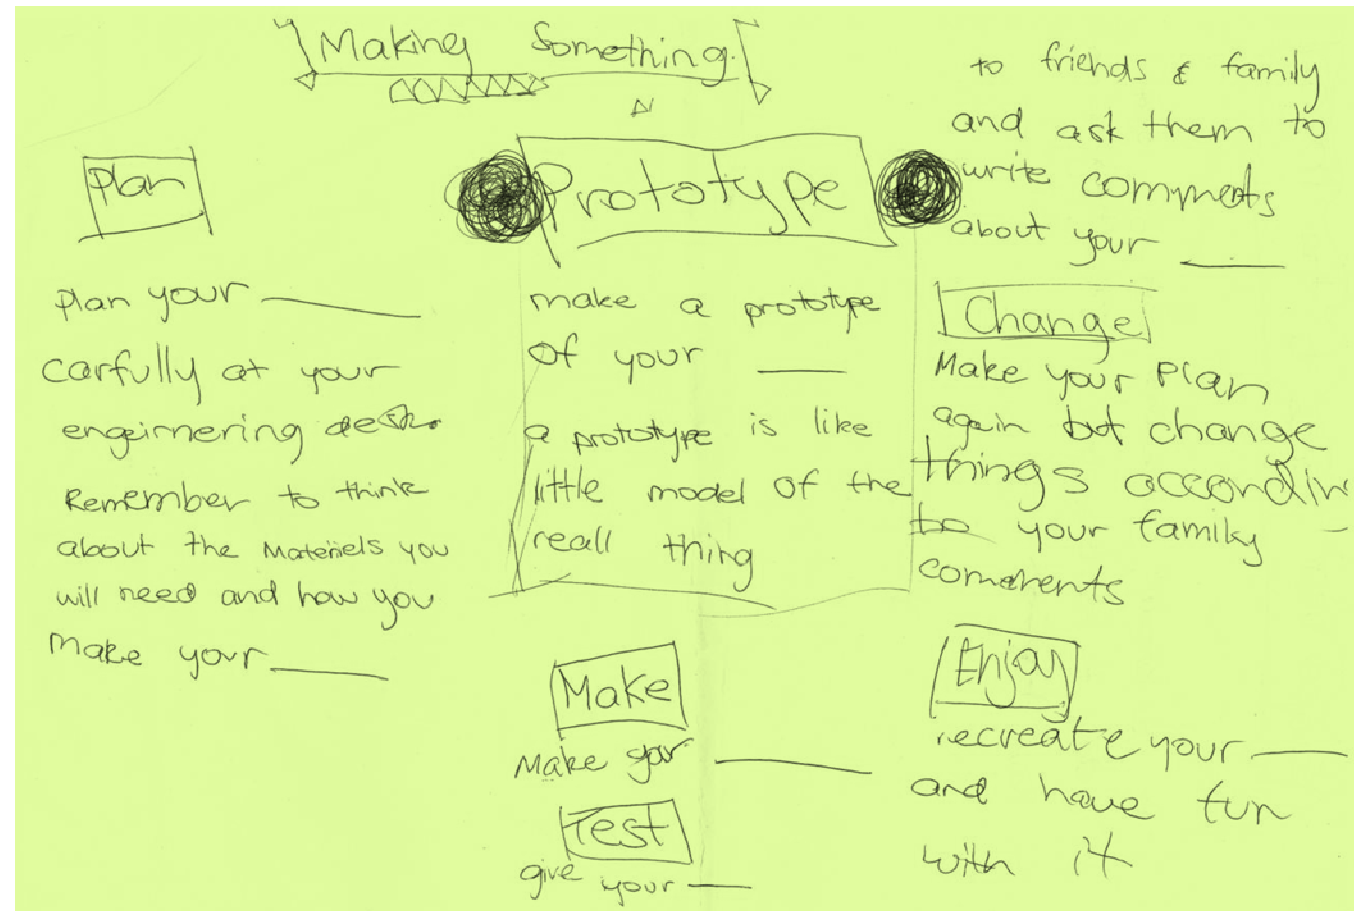 Making Something.
Plan
Plan your ______
carfully at your
engeirnering desk.
Remember to think
about the Materiels you
will need and how you
Make your ______
Prototype
make a prototype
of your ____
a prototype is like
little model of the
reall thing
Make
Make your ______
Test
give your ____
to friends & family
and ask them to
write comments
about your ____
Change
Make your Plan
again but change
things accordin
to your family
comments
Enjoy
recreate your ____
and have fun
with it